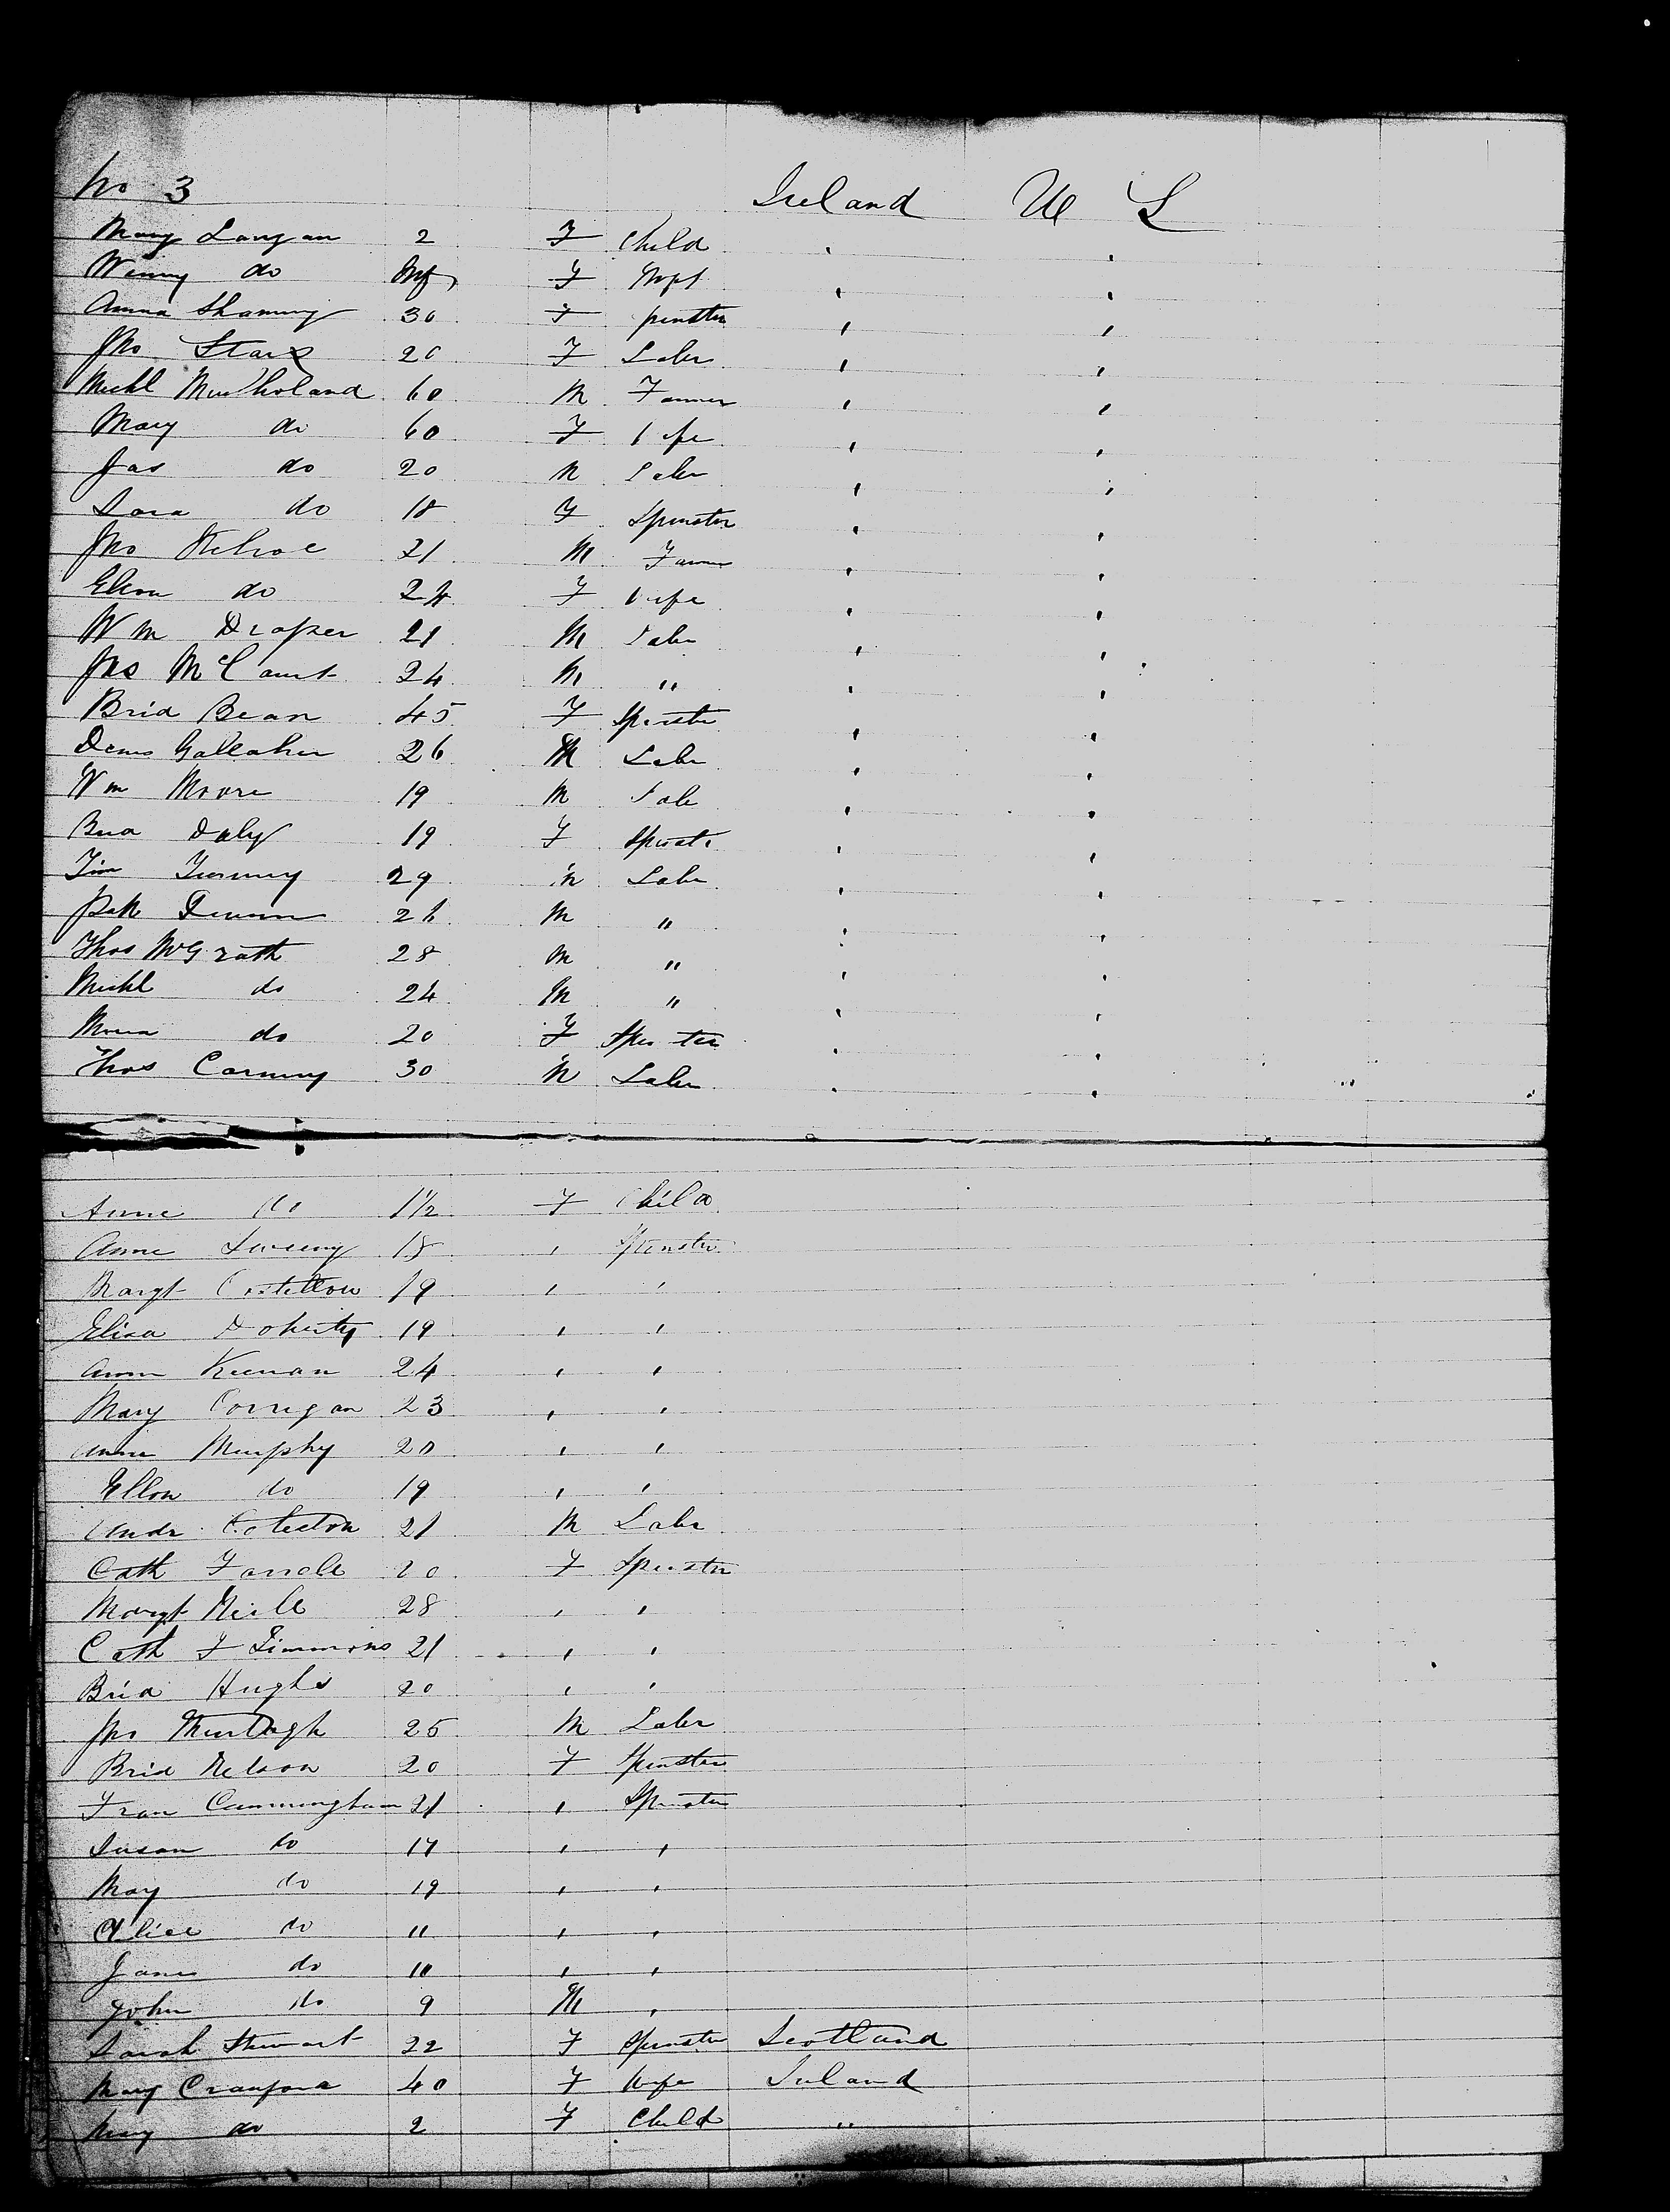 No 3 Ireland U S
Mary Langan 2 F Child '
Winny do Inf F Inft ' '
Anna 30 F spinster ' '
Jno 20 F Labr ' '
Michl Mulholand 60 M Farmer ' '
Mary do 60 F Wife ' '
Jas do 20 M Labr ' '
Sara do 18 F Spinster ' '
Jno 21 M Farmer ' '
Ellen do 24 F Wife ' '
Wm Draper 21 M Labr ' '
Jas 24 M " ' '
Brid Bean 45 F Spinster ' '
Denis Gallaher 26 M Labr ' '
Wm Moore 19 M Labr ' '
Brid Daly 19 F Spinster ' '
Tim 29 M Labr ' '
Pat M " ' '
Thos McGrath 28 M " ' '
Michl do 24 M " ' '
Maria do 20 F Spinster ' '
Thos 30 M Labr ' '
Anne do 1½ F Child
Anne Sweeny 18 ' Spinster
Margt Costellow 19 ' '
Eliza Doherty 19 ' '
Anne Keenan 24 ' '
Mary Corrigan 23 ' '
Anne Murphy 20 ' '
Ellen do 19 ' '
Andr 21 M Labr
Cath Farrell 20 F Spinster
Margt Neill 28 ' '
Cath F Simmons 21 ' '
Brid Hughs 20 ' '
Jno Murtagh 25 M Labr
Brid Nelson 20 F Spinster
Fran Cunningham 21 ' Spinster
Susan do 17 ' '
May do 19 ' '
Alice do 11 ' '
Jane do 10 ' '
John do 9 M '
Sarah Stewart 22 F Spinster Scotland
Mary Crawford 40 F Wife Ireland
Mary do 2 F Child "